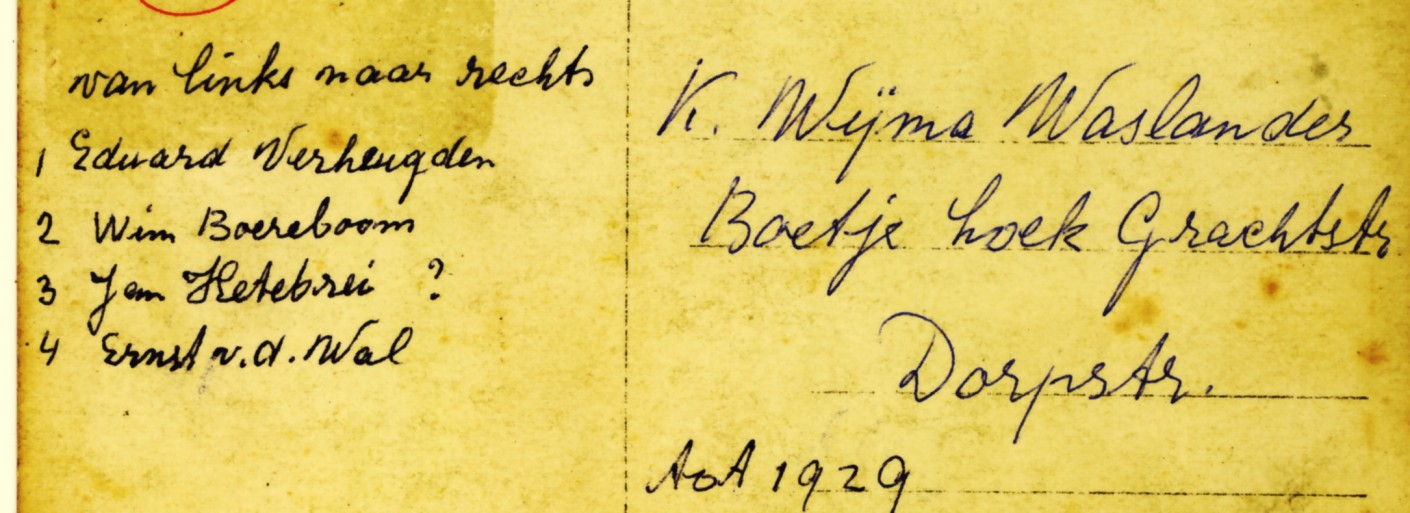 van links naar rechts
1 Eduard Verheugden
2 Wim Boereboom
3 Jan Hetebrei ?
4 Ernst v.d. Wal
K. Wijma Waslander
Boetje hoek Grachtstr
Dorpstr.
tot 1929